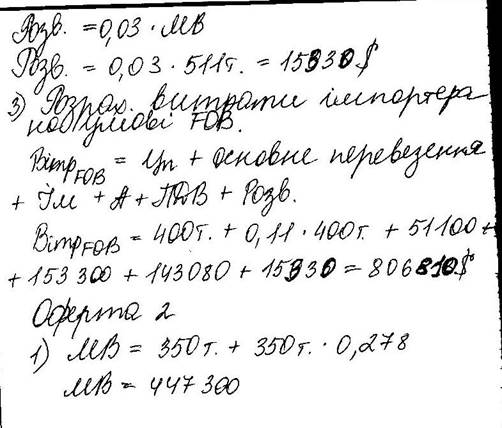 Розв. = 0,03 · МВ
Розв. = 0,03 · 511т. = 15330$
3) Розрах. витрати імпортера
на умові FOB.
Вітр FOB = Цп + основне перевезення
+ Ім + А + ПДВ + Розв.
Вітр FOB = 400т. + 0,11 · 400т. + 51100 +
+ 153300 + 143080 + 15330 = 806810$
Оферта 2
1) МВ = 350т. + 350т. · 0,278
МВ = 447300